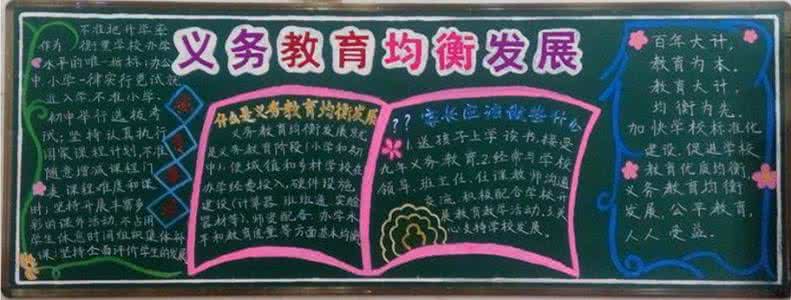 义务教育均衡发展
不准把升学率
作为衡量学校办学
水平的唯一指标;办公
中小学一律实行免试就
近入学,不准小学、
初中举行选拔考
试;坚持认真执行
国家课程计划,不准
随意增减课程门
类、课程难度和课
时;坚持开展丰富多
彩的课外活动,不占用
学生休息时间组织集体补
课;坚持全面评价学生的发展
什么是义务教育均衡发展
义务教育均衡发展就
是义务教育阶段(小学和初
中),使城镇和乡村学校在
办学经费投入,硬件设施、
建设(计算器、班班通、实验
器材等)、师资配合、办学水
平和教育质量等方面基本均衡
??家长应该做些什么
1.送孩子上学读书,接受
九年义务教育.2.经常与学校
领导、班主任、任课教师沟通
交流,积极配合学校开
展教育教学活动.3.关
心支持学校发展.
百年大计,
教育为本。
教育大计,
均衡为先。
加快学校标准化
建设,促进学校
教育优质均衡
义务教育均衡
发展,公平教育,
人人受益。